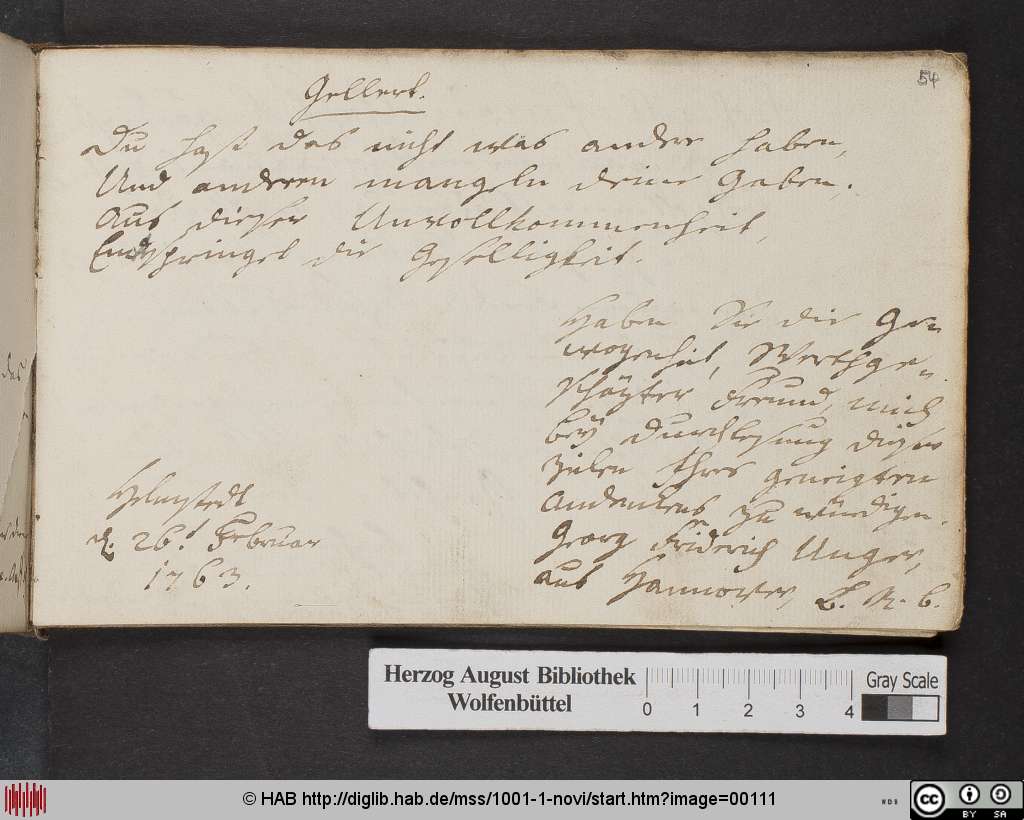 54
Gellert.
Du hast das nicht was andre haben,
Und anderen mangeln deine Gaben.
Aus dieser Unvollkommenheit,
Entspringet die Geselligkeit.
Haben Sie die Gee
wogenheit, Werthge-
schäzter Freund, mich
bey Durchlesung dieser
Zeilen Ihres geneigten
Andenkens zu würdigen.
Georg Friderich Unger,
aus Hannover,
Helmstedt
d. 26t Februar
1763.
Herzog August Bibliothek
Wolfenbüttel
0 1 2 3 4
Gray Scale
© HAB http://diglib.hab.de/mss/1001-1-novi/start.htm?image=00111
WDB
CC BY SA